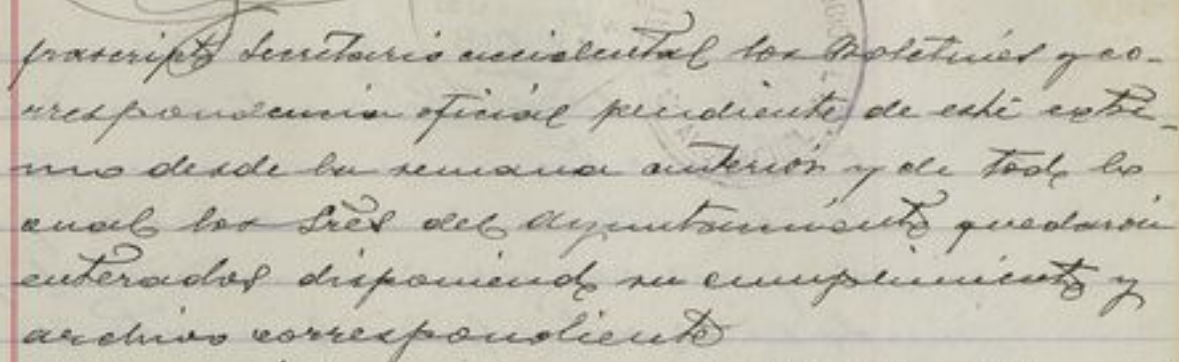 frascripto Secretario accidental los Boletines y co-
rrespondencia oficial pendiente de este extre-
mo desde la semana anterior y de todo lo
cual los Srēs del Ayuntamiento quedaron
enterados disponiendo su cumplimiento y
archivo correspondiente